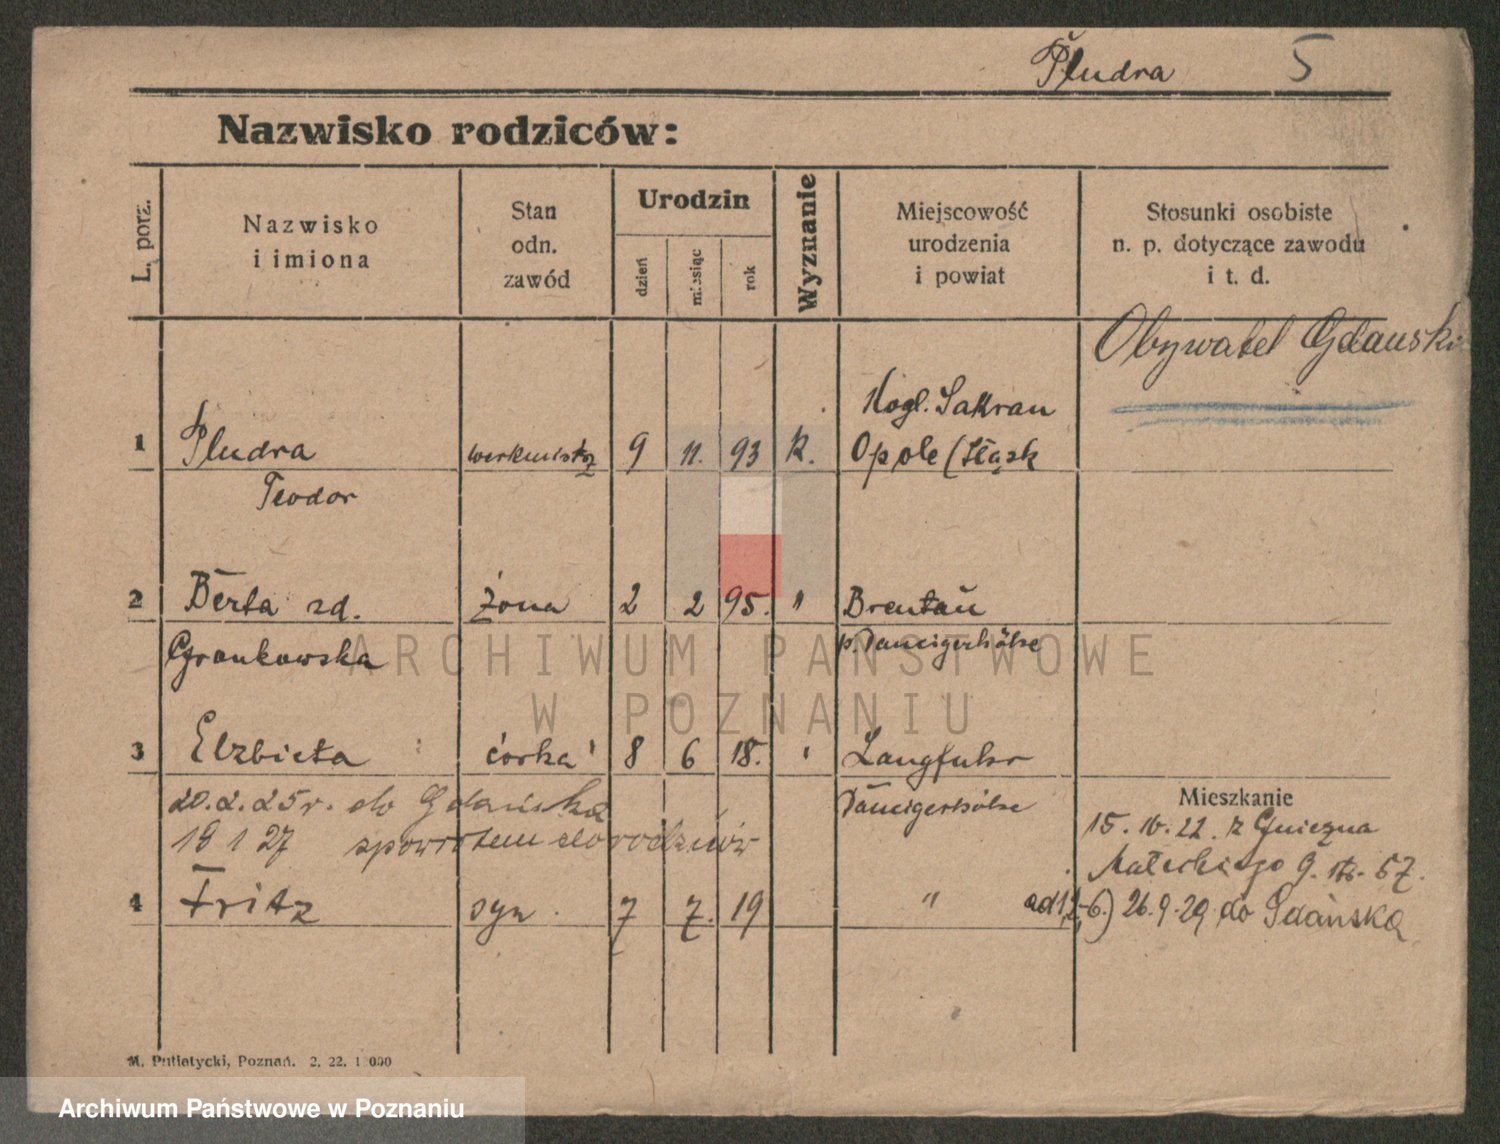 Pludra 5
Nazwisko rodziców:
L. porz.
Nazwisko
i imiona
Stan
odn.
zawód
Urodzin
dzień
miesiąc
rok
Wyznanie
Miejscowość
urodzenia
i powiat
Stosunki osobiste
n. p. dotyczące zawodu
i t. d.
Obywatel Gdański
1 Pludra werkmistrz 9 11. 93 k. Sakrau
Opole (Śląsk
Teodor
2 Berta zd. żona 2 2 95. " Brentau
Gronkowska p. Danzigerhöhe
3 Elżbieta córka 8 6 18. " Langfuhr
Danzigerhöhe
20.2.25 r. do Gdańska
19 1 27 spowrotem do rodziców
Mieszkanie
15.10.22. z Gniezna
Małeckiego 9. 57.
4 Fritz syn. 7 7. 19 " ad 1,2,-6.) 26.9.29 do Gdańska
M. Putiatycki, Poznań. 2. 22. 1000
ARCHIWUM PAŃSTWOWE
W POZNANIU
Archiwum Państwowe w Poznaniu